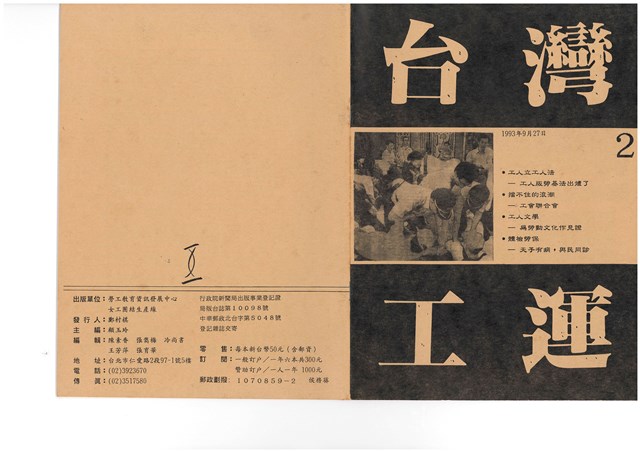 台灣
1993年9月27日
2
• 工人立工人法
— 工人版勞基法出爐了
• 擋不住的浪潮
— 工會聯合會
• 工人文學
— 為勞動文化作見證
• 體檢勞保
— 天子有病，與民同診
工運
出版單位：勞工教育資訊發展中心
女工團結生產線
發行人：鄭村棋
主編：顧玉玲
編輯：陳素香 張喬婷 冷尚書
王芳萍 張育華
地址：台北市仁愛路2段97-1號5樓
電話：(02)3923670
傳真：(02)3517580
行政院新聞局出版事業登記證
局版台誌第10098號
中華郵政北台字第5048號
登記雜誌交寄
零售：每本新台幣50元(含郵資)
訂閱：一般訂戶/一年六本共300元
贊助訂戶/一人一年 1000元
郵政劃撥：1070859-2